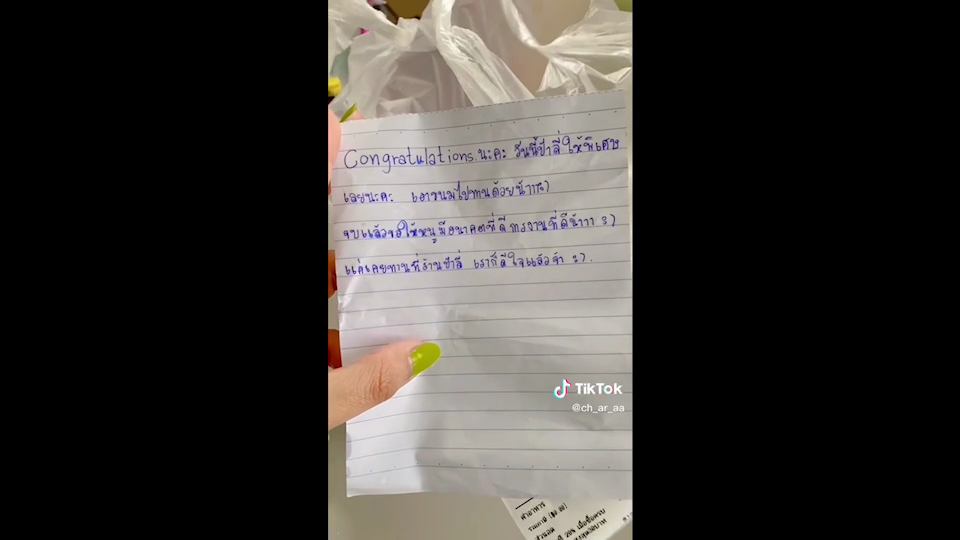 Congratulations นะคะ วันนี้ป้าลี่ให้พิเศษ
เลยนะคะ เอาขนมไปทานด้วยน้าาา:)
จบแล้วขอให้หนูมีอนาคตที่ดี การงานที่ดีน้าาา :)
แค่เคยทานที่ร้านป้าลี่ เราก็ดีใจแล้วจ้า :).
TikTok
@ch_ar_aa
ค่าอาหาร